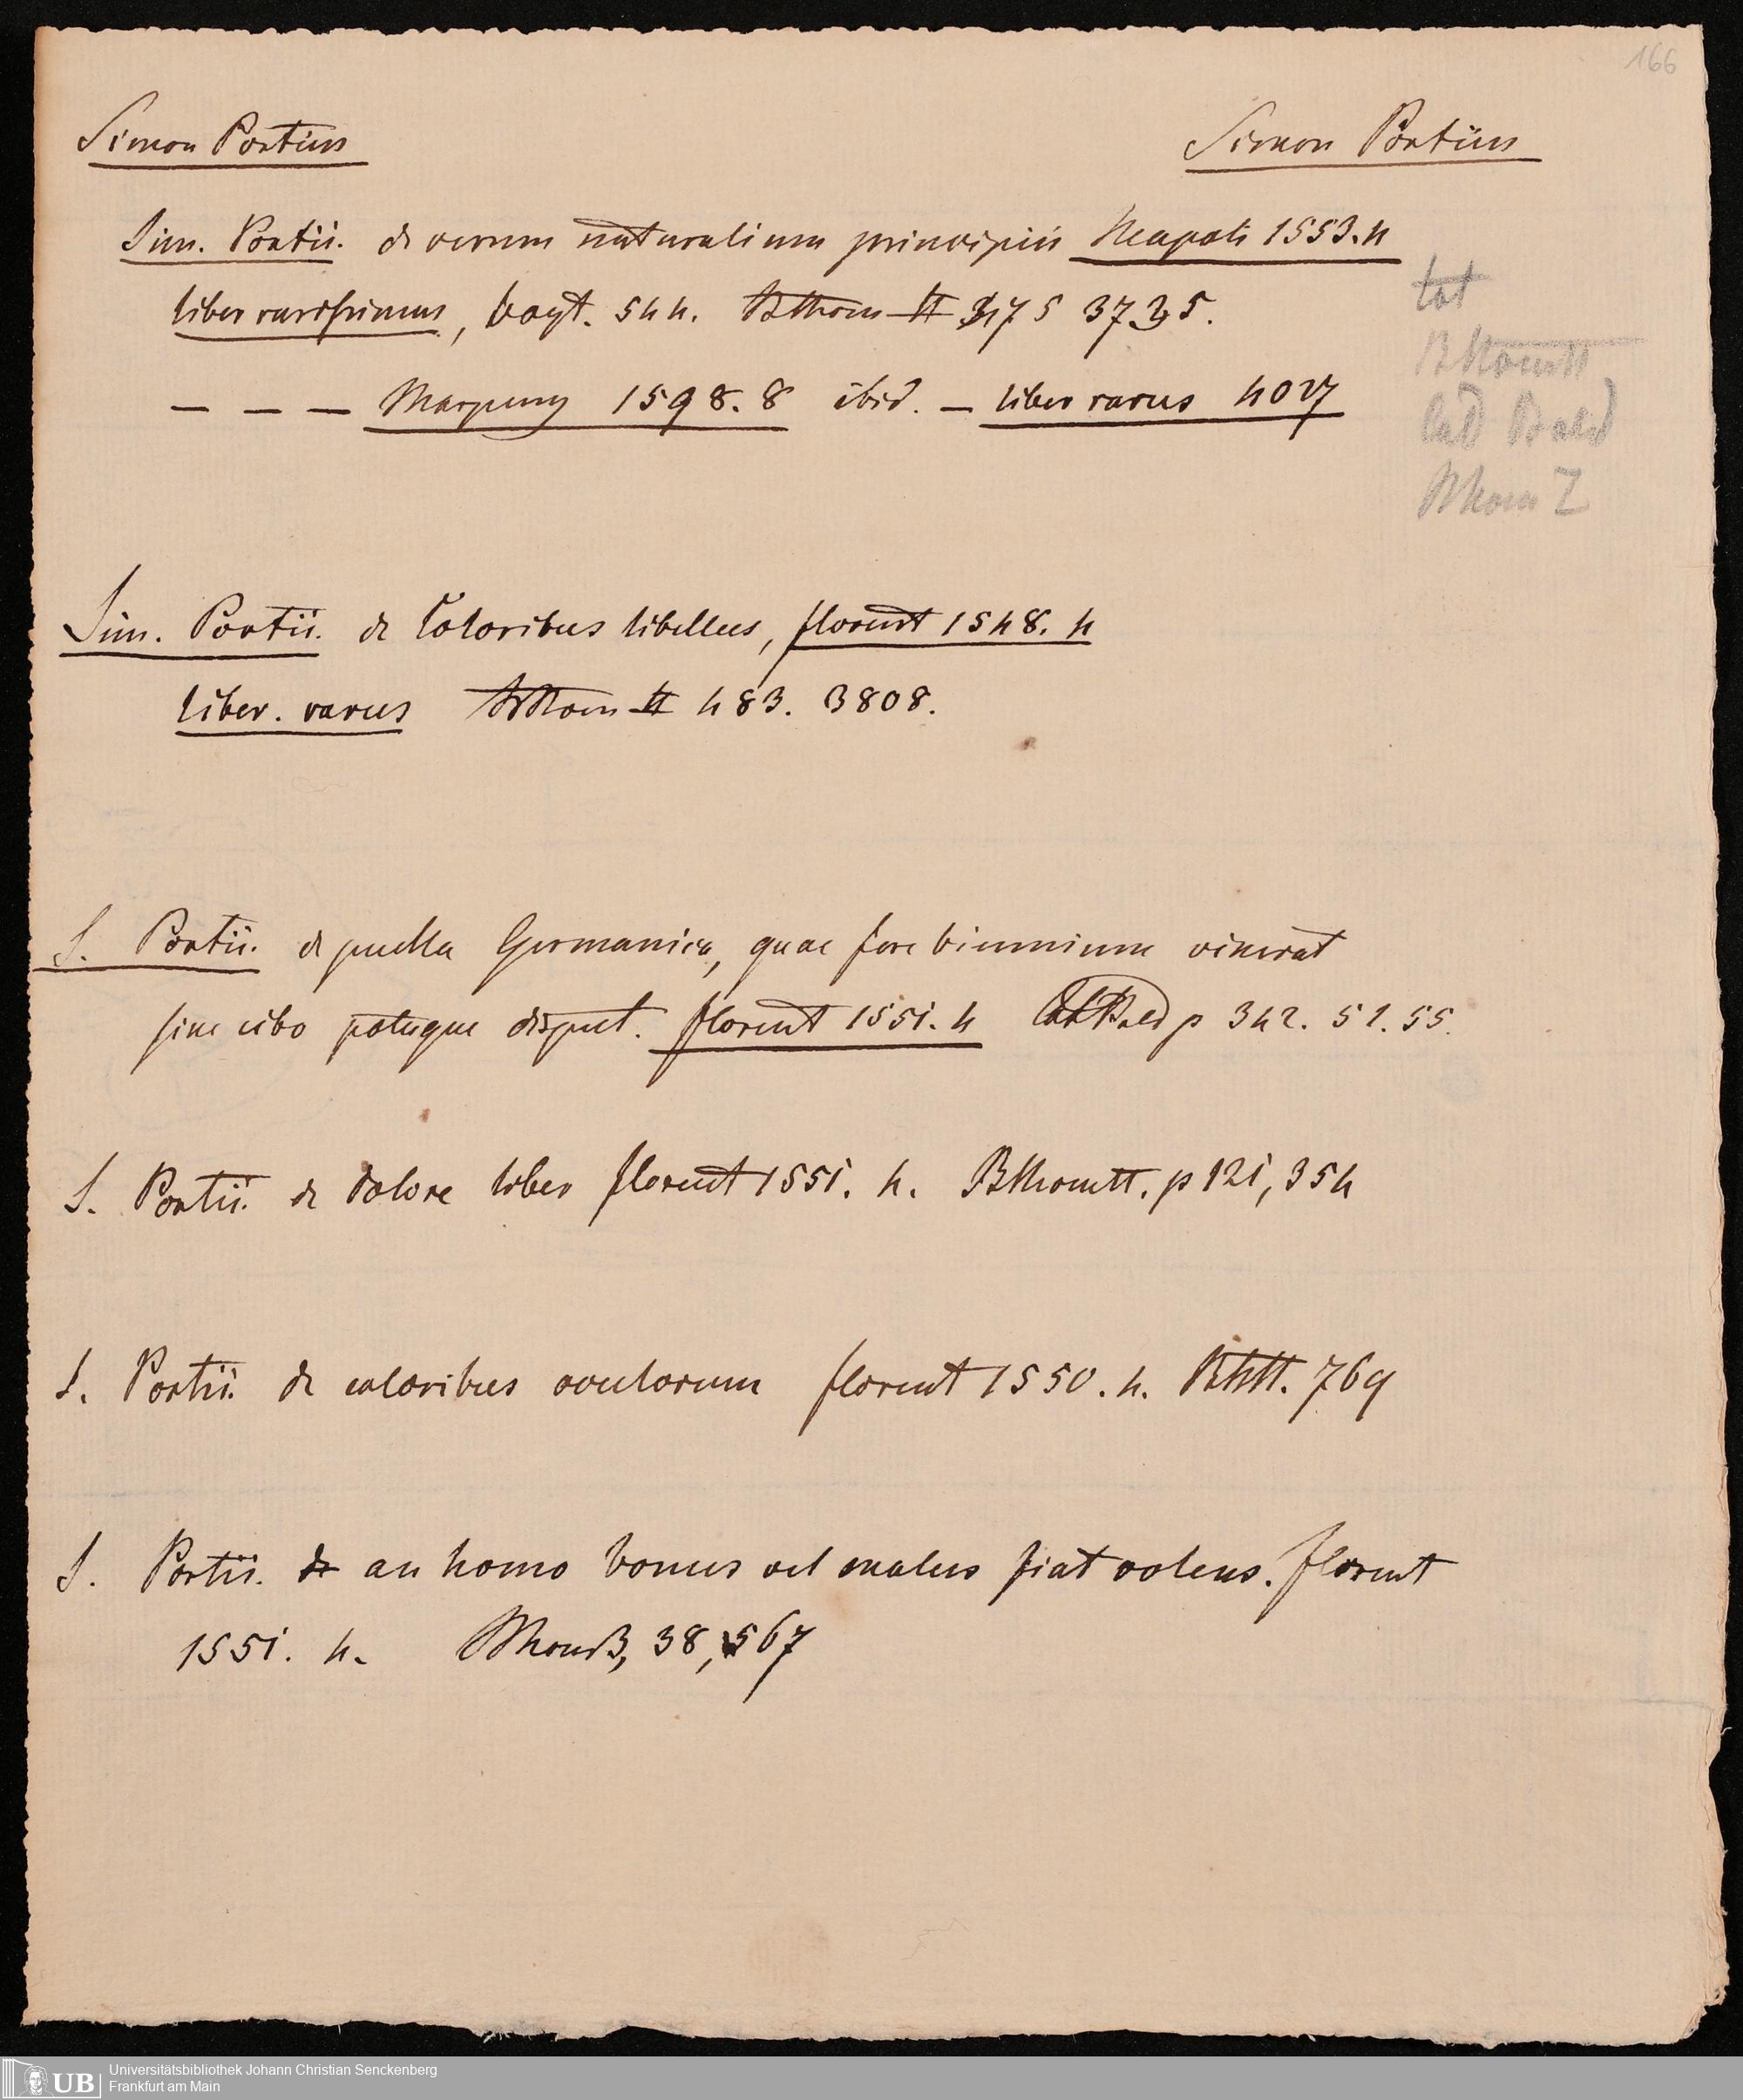 166
Simon Portius
Simon Portius
Sim. Portii. de rerum naturalium principiis Neapoli 1553. 4
liber rarissimus, Vogt. 544. Bthom II 375 3735.
— — — Marpurg 1598. 8 ibid. — liber rarus 407
tot
BthomII
Cat Bald
Bthom I
Sim. Portii. de Coloribus libellus, florent 1548. 4
liber. rarus Bthom II 483. 3808.
S. Portii. de puella Germanica, quae fere biennium vixerat
sine cibo potuque disput. florent 1551. 4 Cat Bald p 342. 51. 55.
S. Portii. de dolore liber florent 1551. 4. BthomII. p 121, 354
S. Portii. de coloribus oculorum florent 1550. 4. BthII. 769
S. Portii. de an homo bonus vel malus fiat volens. florent
1551. 4. 38, 567
Universitätsbibliothek Johann Christian Senckenberg
Frankfurt am Main
UB